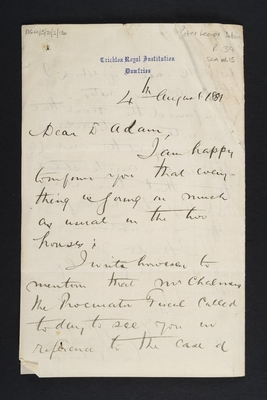 DGH1/5/2/1/20
P. 39
Crichton Royal Institution
Dumfries
4th August 1881
Dear Dr Adam,
I am happy
to inform you that every-
thing is going on much
as usual in the two
houses;
I write however to
mention that Mr Chalmers
the Procurator Fiscal Called
today, to see you in
reference to the case of